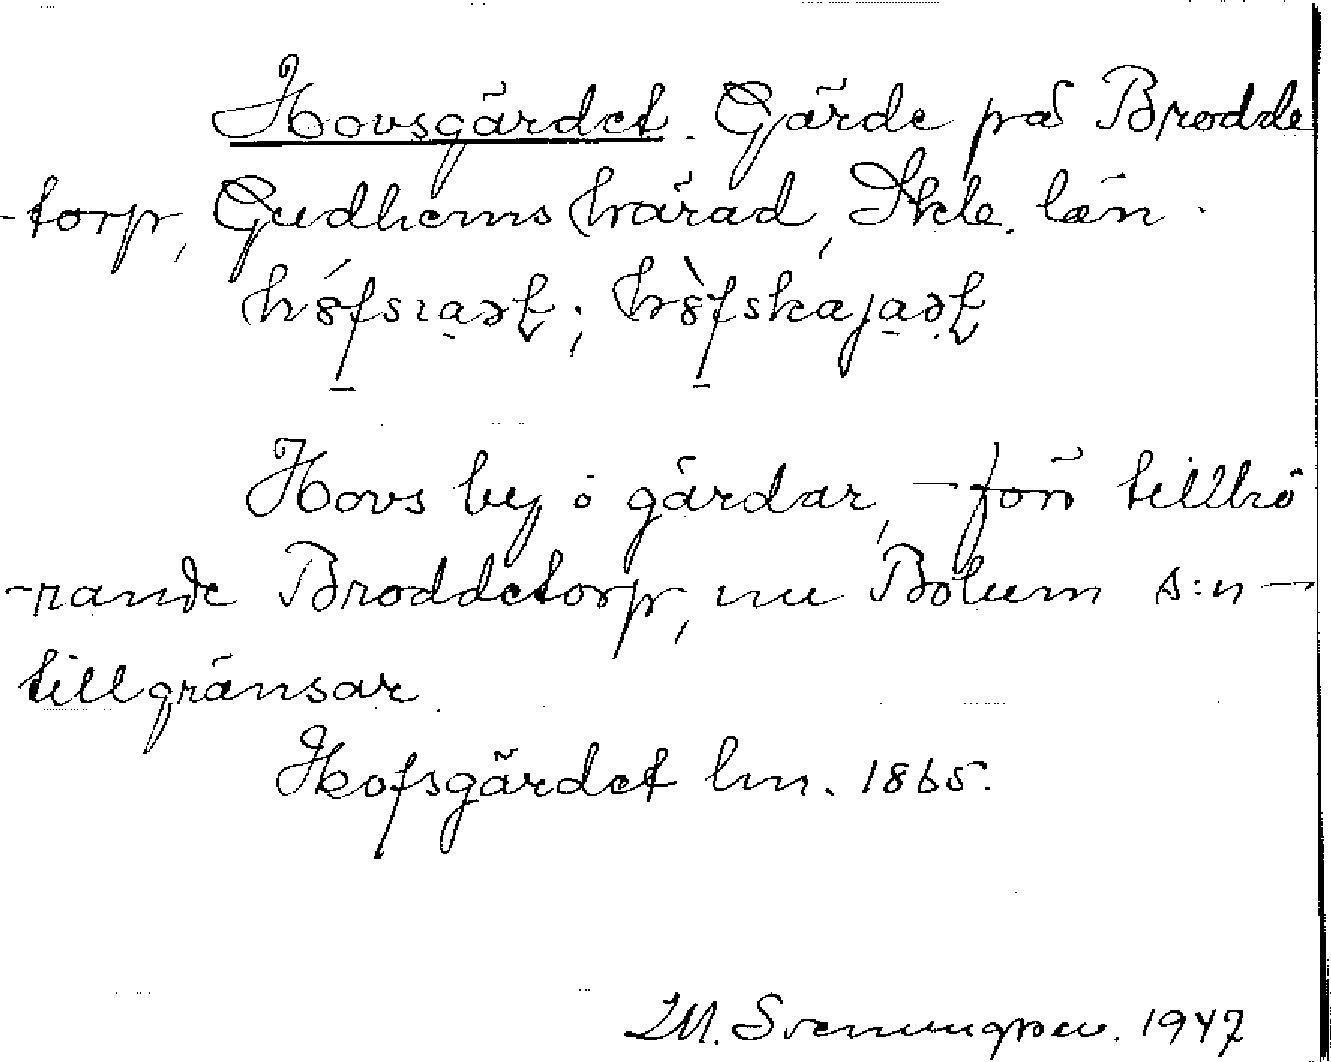 Hovsgärdet. Gärde på Brodde
-torp, Gudhems härad, Skb. län.
Hovs by ö gårdar, - förr tillhö
-rande Broddetorp, nu Bolum s:n -
tillgränsar.
Hofsgärdet lm. 1865.
M. Svenungsson. 1947